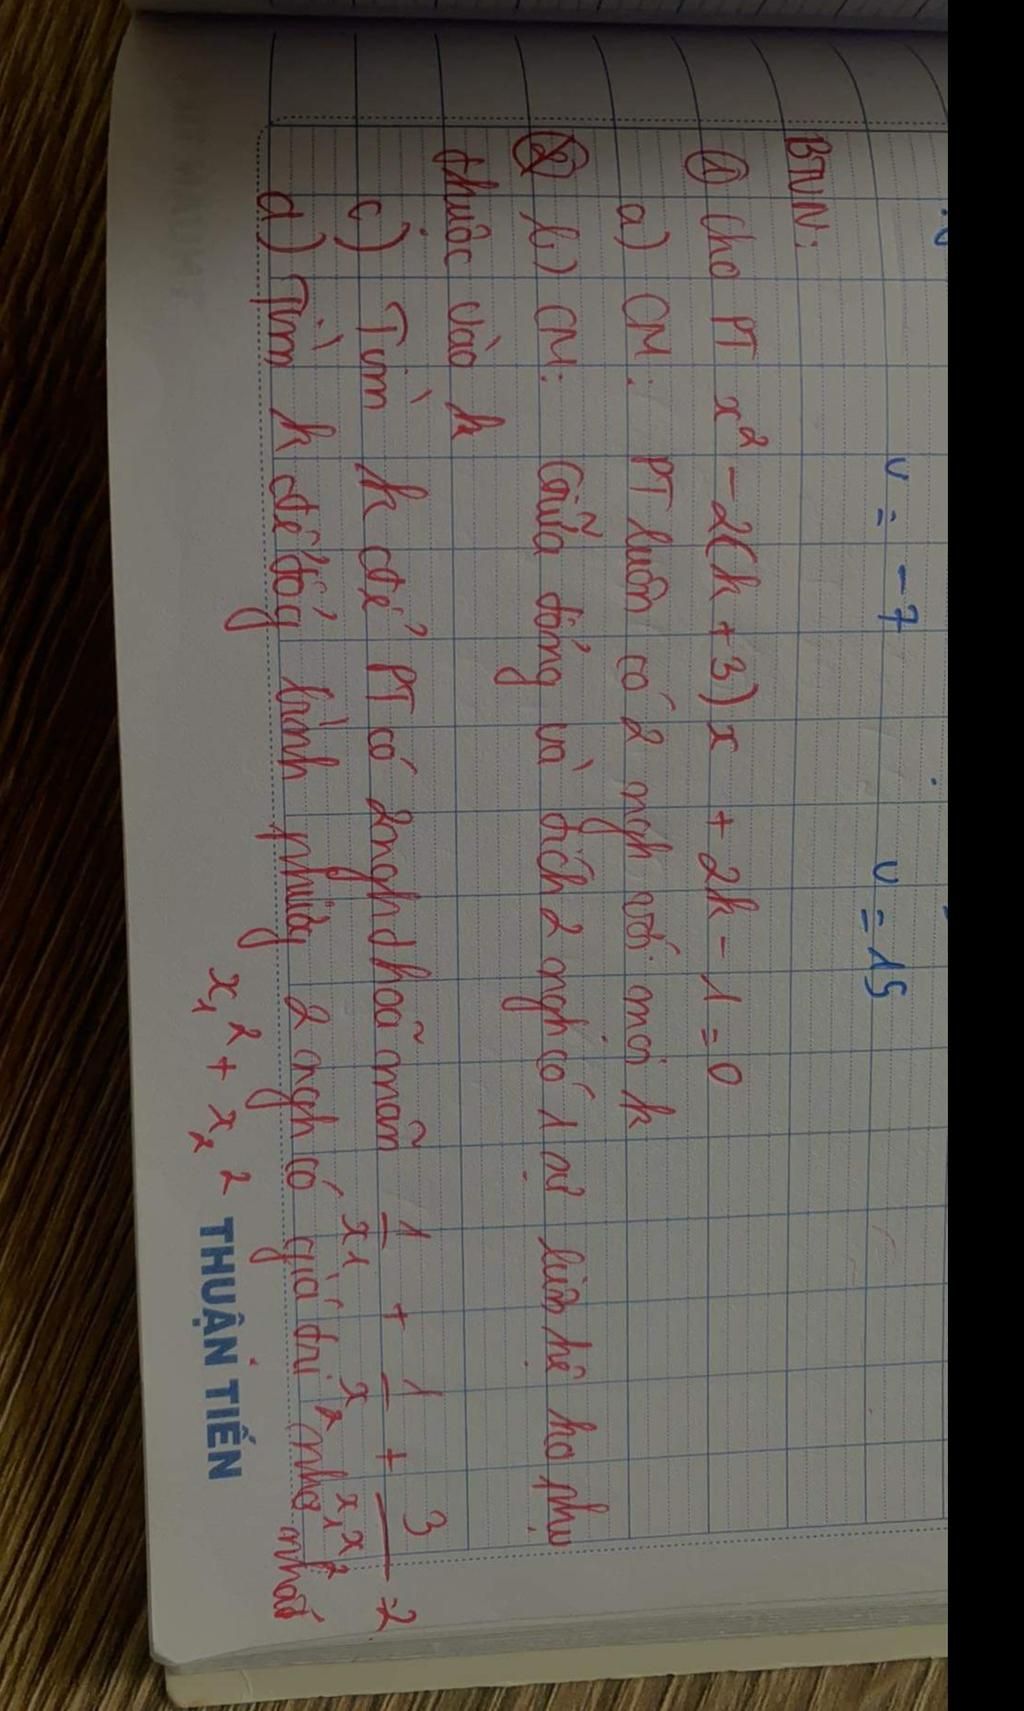 v = -7 v = 15
BTVN:
① Cho PT x² - 2(k + 3)x + 2k - 1 = 0
a) CM: PT luôn có 2 ngh với mọi k
② b) CM: Giữa tổng và tích 2 ngh có 1 sự liên hệ ko phụ
thuộc vào k
c) Tìm k để PT có 2 ngh thoả mãn 1/x₁ + 1/x₂ + 3/x₁x₂ = 2
d) Tìm k để tổg bình phươg 2 ngh có giá trị nhỏ nhất
x₁² + x₂²
THUẬN TIẾN